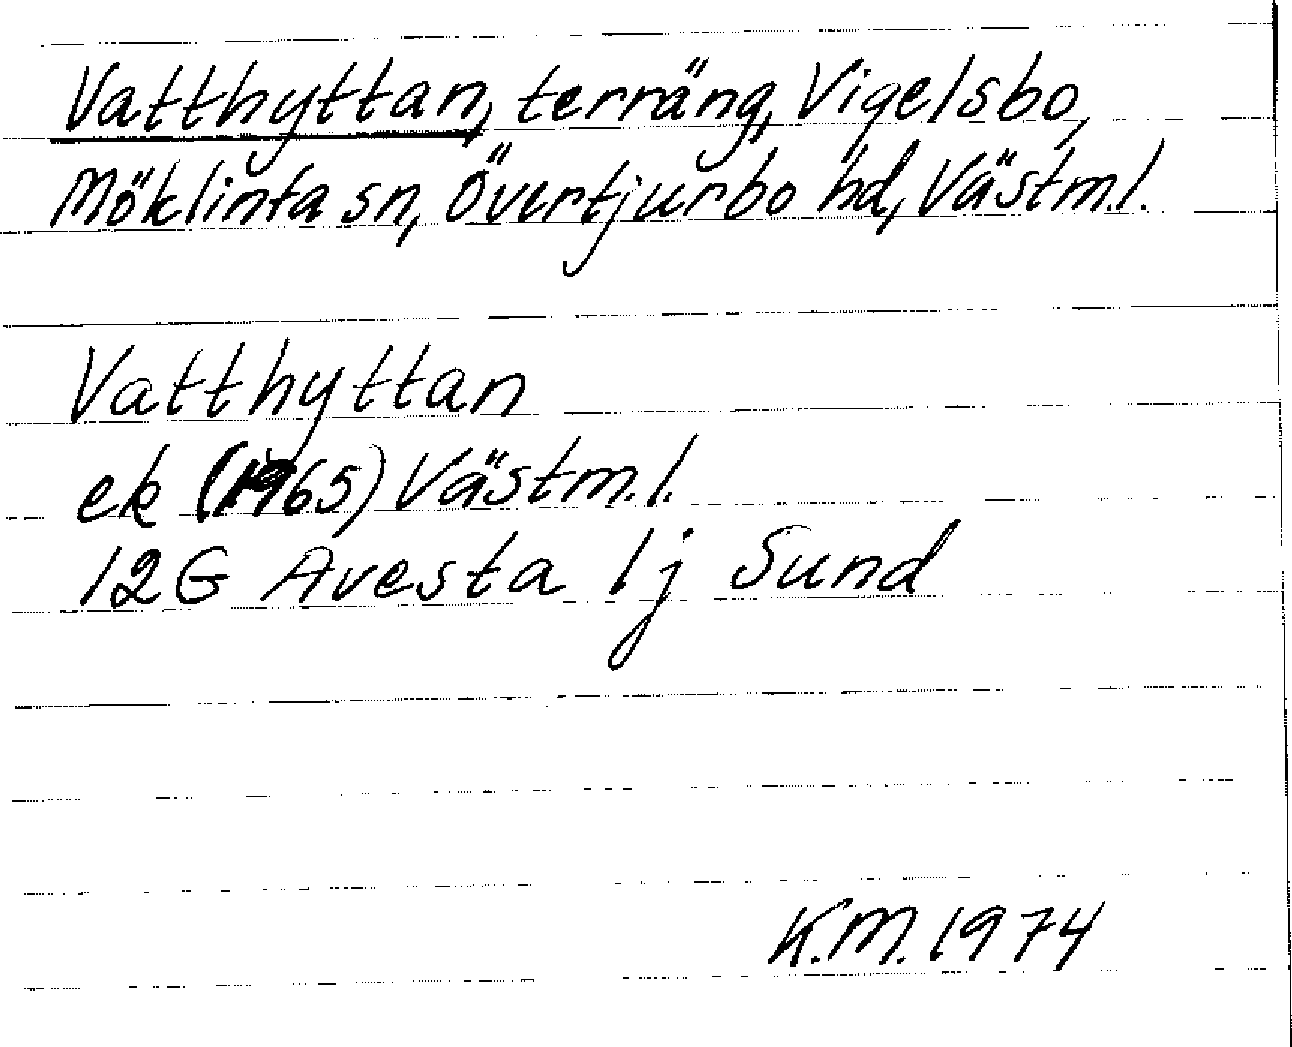 Vatthyttan, terräng, Vigelsbo,
Möklinta sn, Övertjurbo hd, Västm.l.
Vatthyttan
ek (1965) Västm.l.
12G Avesta 1j Sund
K.M. 1974